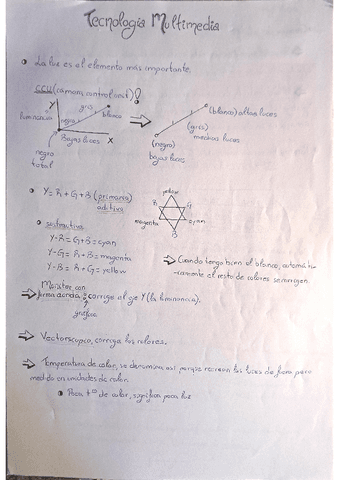 Tecnología Multimedia
La luz es el elemento más importante.
CCU (camara control unit)!
Y
gris
blanco
luminancia
negro
Bajas luces
X
negro total
(blanco) altas luces
(gris)
medias luces
(negro)
bajas luces
Y = R + G + B (primaria)
aditiva
yellow
R
G
magenta
cyan
B
sustractiva
Y-R = G+B = cyan
Y-G = R+B = magenta
Y-B = R+G = yellow
Cuando tengo bien el blanco, automáti-
camente el resto de colores se corrigen.
Monitor con
forma de onda: corrige al eje Y (la luminancia).
gráfica
Vectorscopio, corrige los colores.
Temperatura de color, se denomina así porque recrean las luces de forma pero
medido en unidades de calor.
Poca tª de color, significa poca luz